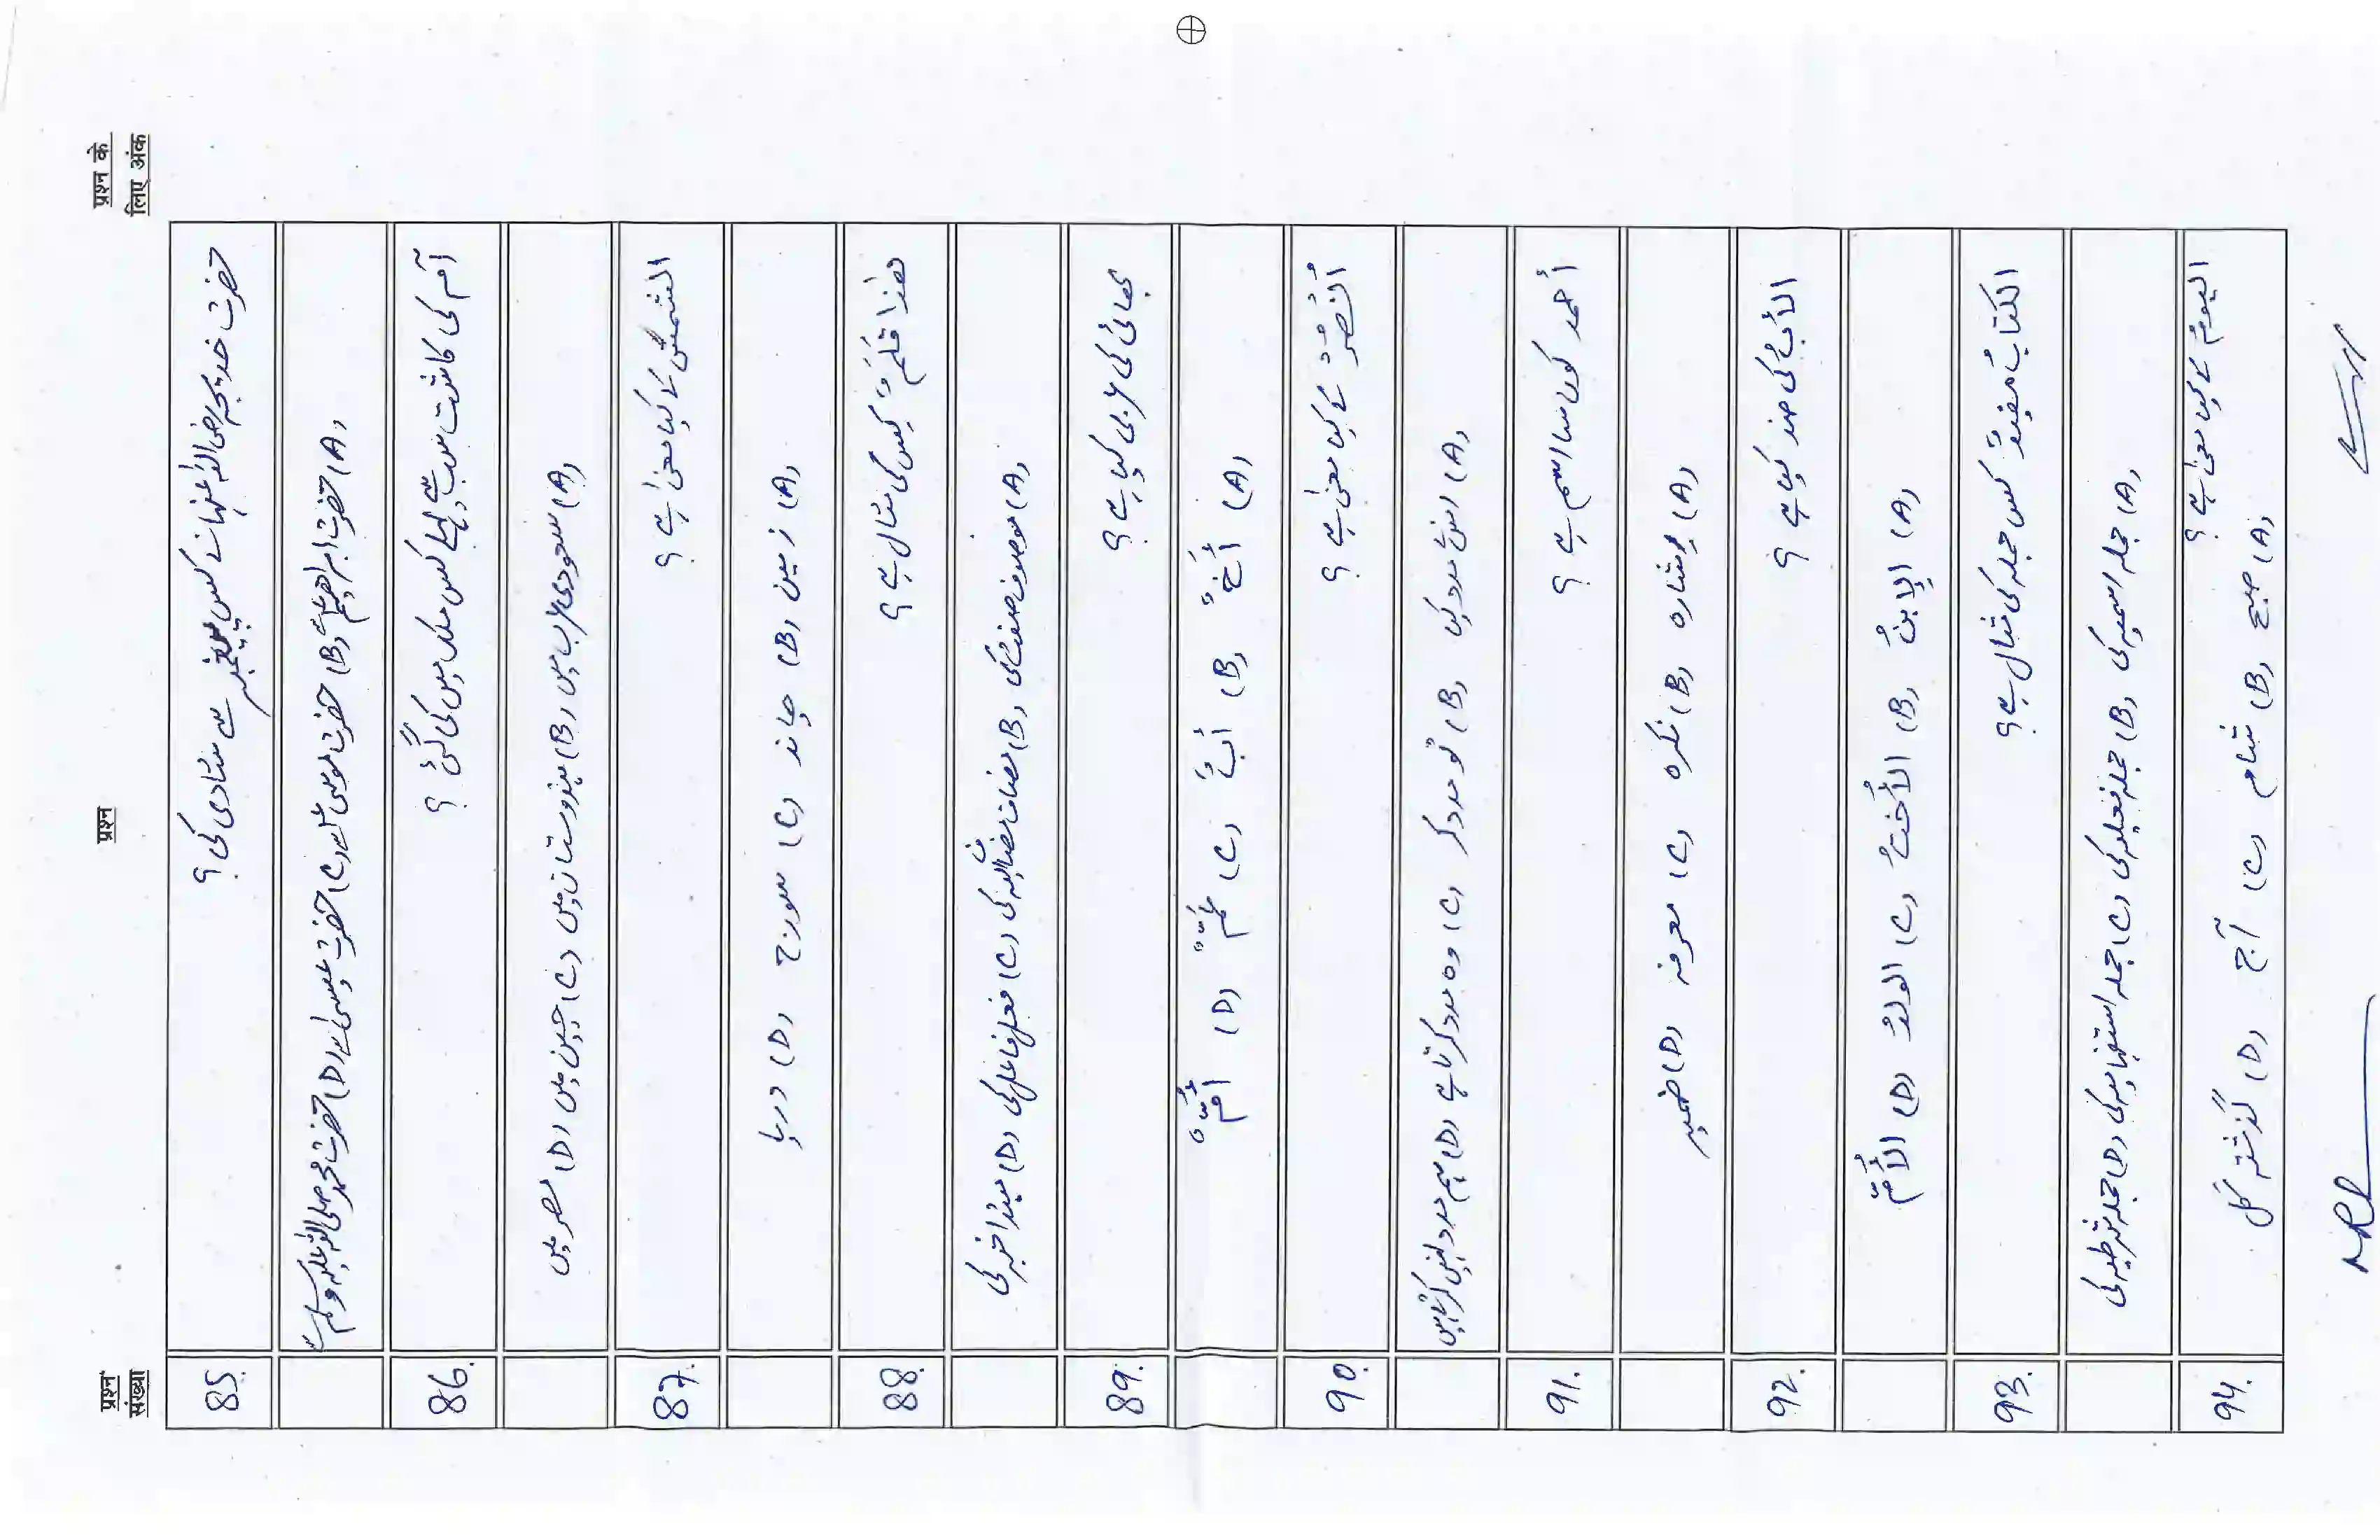 प्रश्न संख्या
प्रश्न
प्रश्न के लिए अंक
85. حضرت خدیجہ رضی اللہ عنہا نے کس پیغمبر سے شادی کی ؟
(A) حضرت ابراھیمؑ سے (B) حضرت موسیٰؑ سے (C) حضرت عیسیٰؑ سے (D) حضرت محمد صلی اللہ علیہ وسلم سے
86. آم کی کاشت سب سے پہلے کس ملک میں کی گئی ؟
(A) سعودی عرب میں (B) ہندوستان میں (C) چین میں (D) مصر میں
87. الشمسُ کے کیا معنیٰ ہے ؟
(A) زمین (B) چاند (C) سورج (D) دریا
88. ھٰذا قَلَمٌ کس کی مثال ہے ؟
(A) موصوف صفت کی (B) مضاف مضاف الیہ کی (C) فعل فاعل کی (D) مبتدا خبر کی
89. بھائی کی عربی کیا ہے ؟
(A) أَخٌ (B) أَبٌ (C) عَمٌّ (D) أُمٌّ
90. اُنْصُرْ کے کیا معنیٰ ہے ؟
(A) اس نے مدد کیا (B) تو مدد کر (C) وہ مدد کرتا ہے (D) ہم مدد نہیں کرتے ہیں
91. أحمد کون سا اسم ہے ؟
(A) اشارہ (B) نکرہ (C) معرفہ (D) ضمیر
92. الأبُ کی ضد کیا ہے ؟
(A) الإبنُ (B) الأختُ (C) الولدُ (D) الأُمُّ
93. الکتابُ مفیدٌ کس جملہ کی مثال ہے ؟
(A) جملہ اسمیہ کی (B) جملہ فعلیہ کی (C) جملہ استفہامیہ کی (D) جملہ شرطیہ کی
94. الیومُ کے کیا معنیٰ ہے ؟
(A) صبح (B) شام (C) آج (D) گذشتہ کل